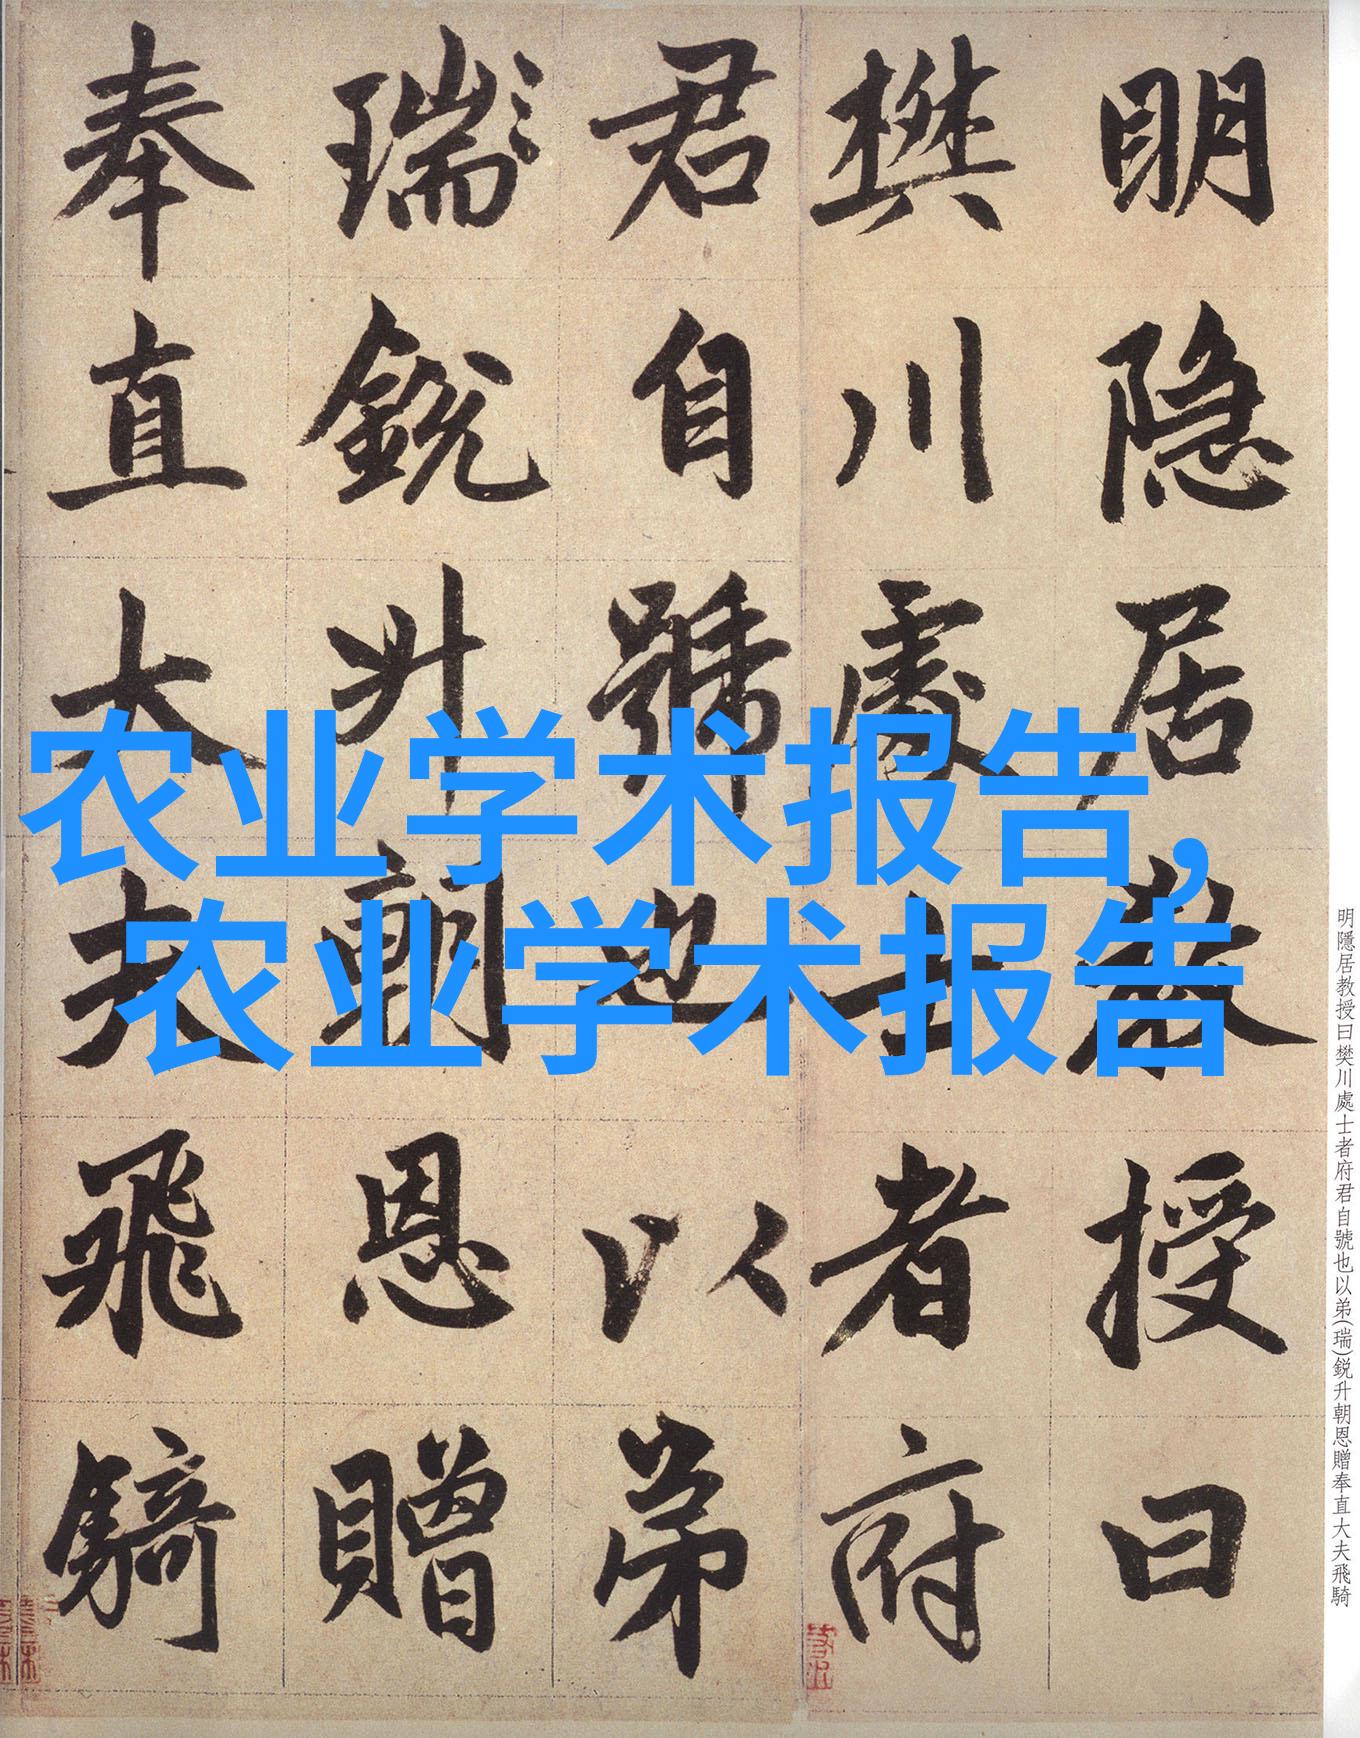 农业学术报告,
农业学术报告
明隐居教授曰
樊川處士者府
君自號也以弟
瑞銳升朝恩贈
奉直大夫飛騎
明隱居教授曰樊川處士者府君自號也以弟(瑞)鋭升朝恩贈奉直大夫飛騎